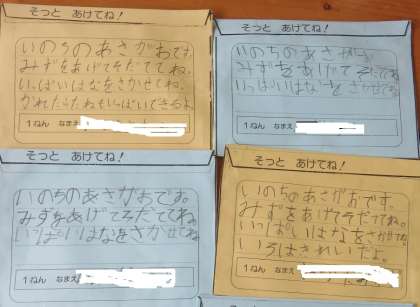 そっと あけてね!
いのちのあさがおです。
みずをあげてそだててね。
いっぱいはなをさかせてね。
かれたらたねもいっぱいできるよ。
1ねん なまえ
そっと あけてね!
いのちのあさがお
みずをあげてそだててね
いっぱいはなをさかせてね
1ねん なまえ
そっと あけてね!
いのちのあさがおです。
みずをあげてそだててね
いっぱいはなをさかせてね
1ねん なまえ
そっと あけてね!
いのちのあさがおです。
みずをあげてそだててね。
いっぱいはなをさかせてね。
いろはきれいだよ。
1ねん なまえ